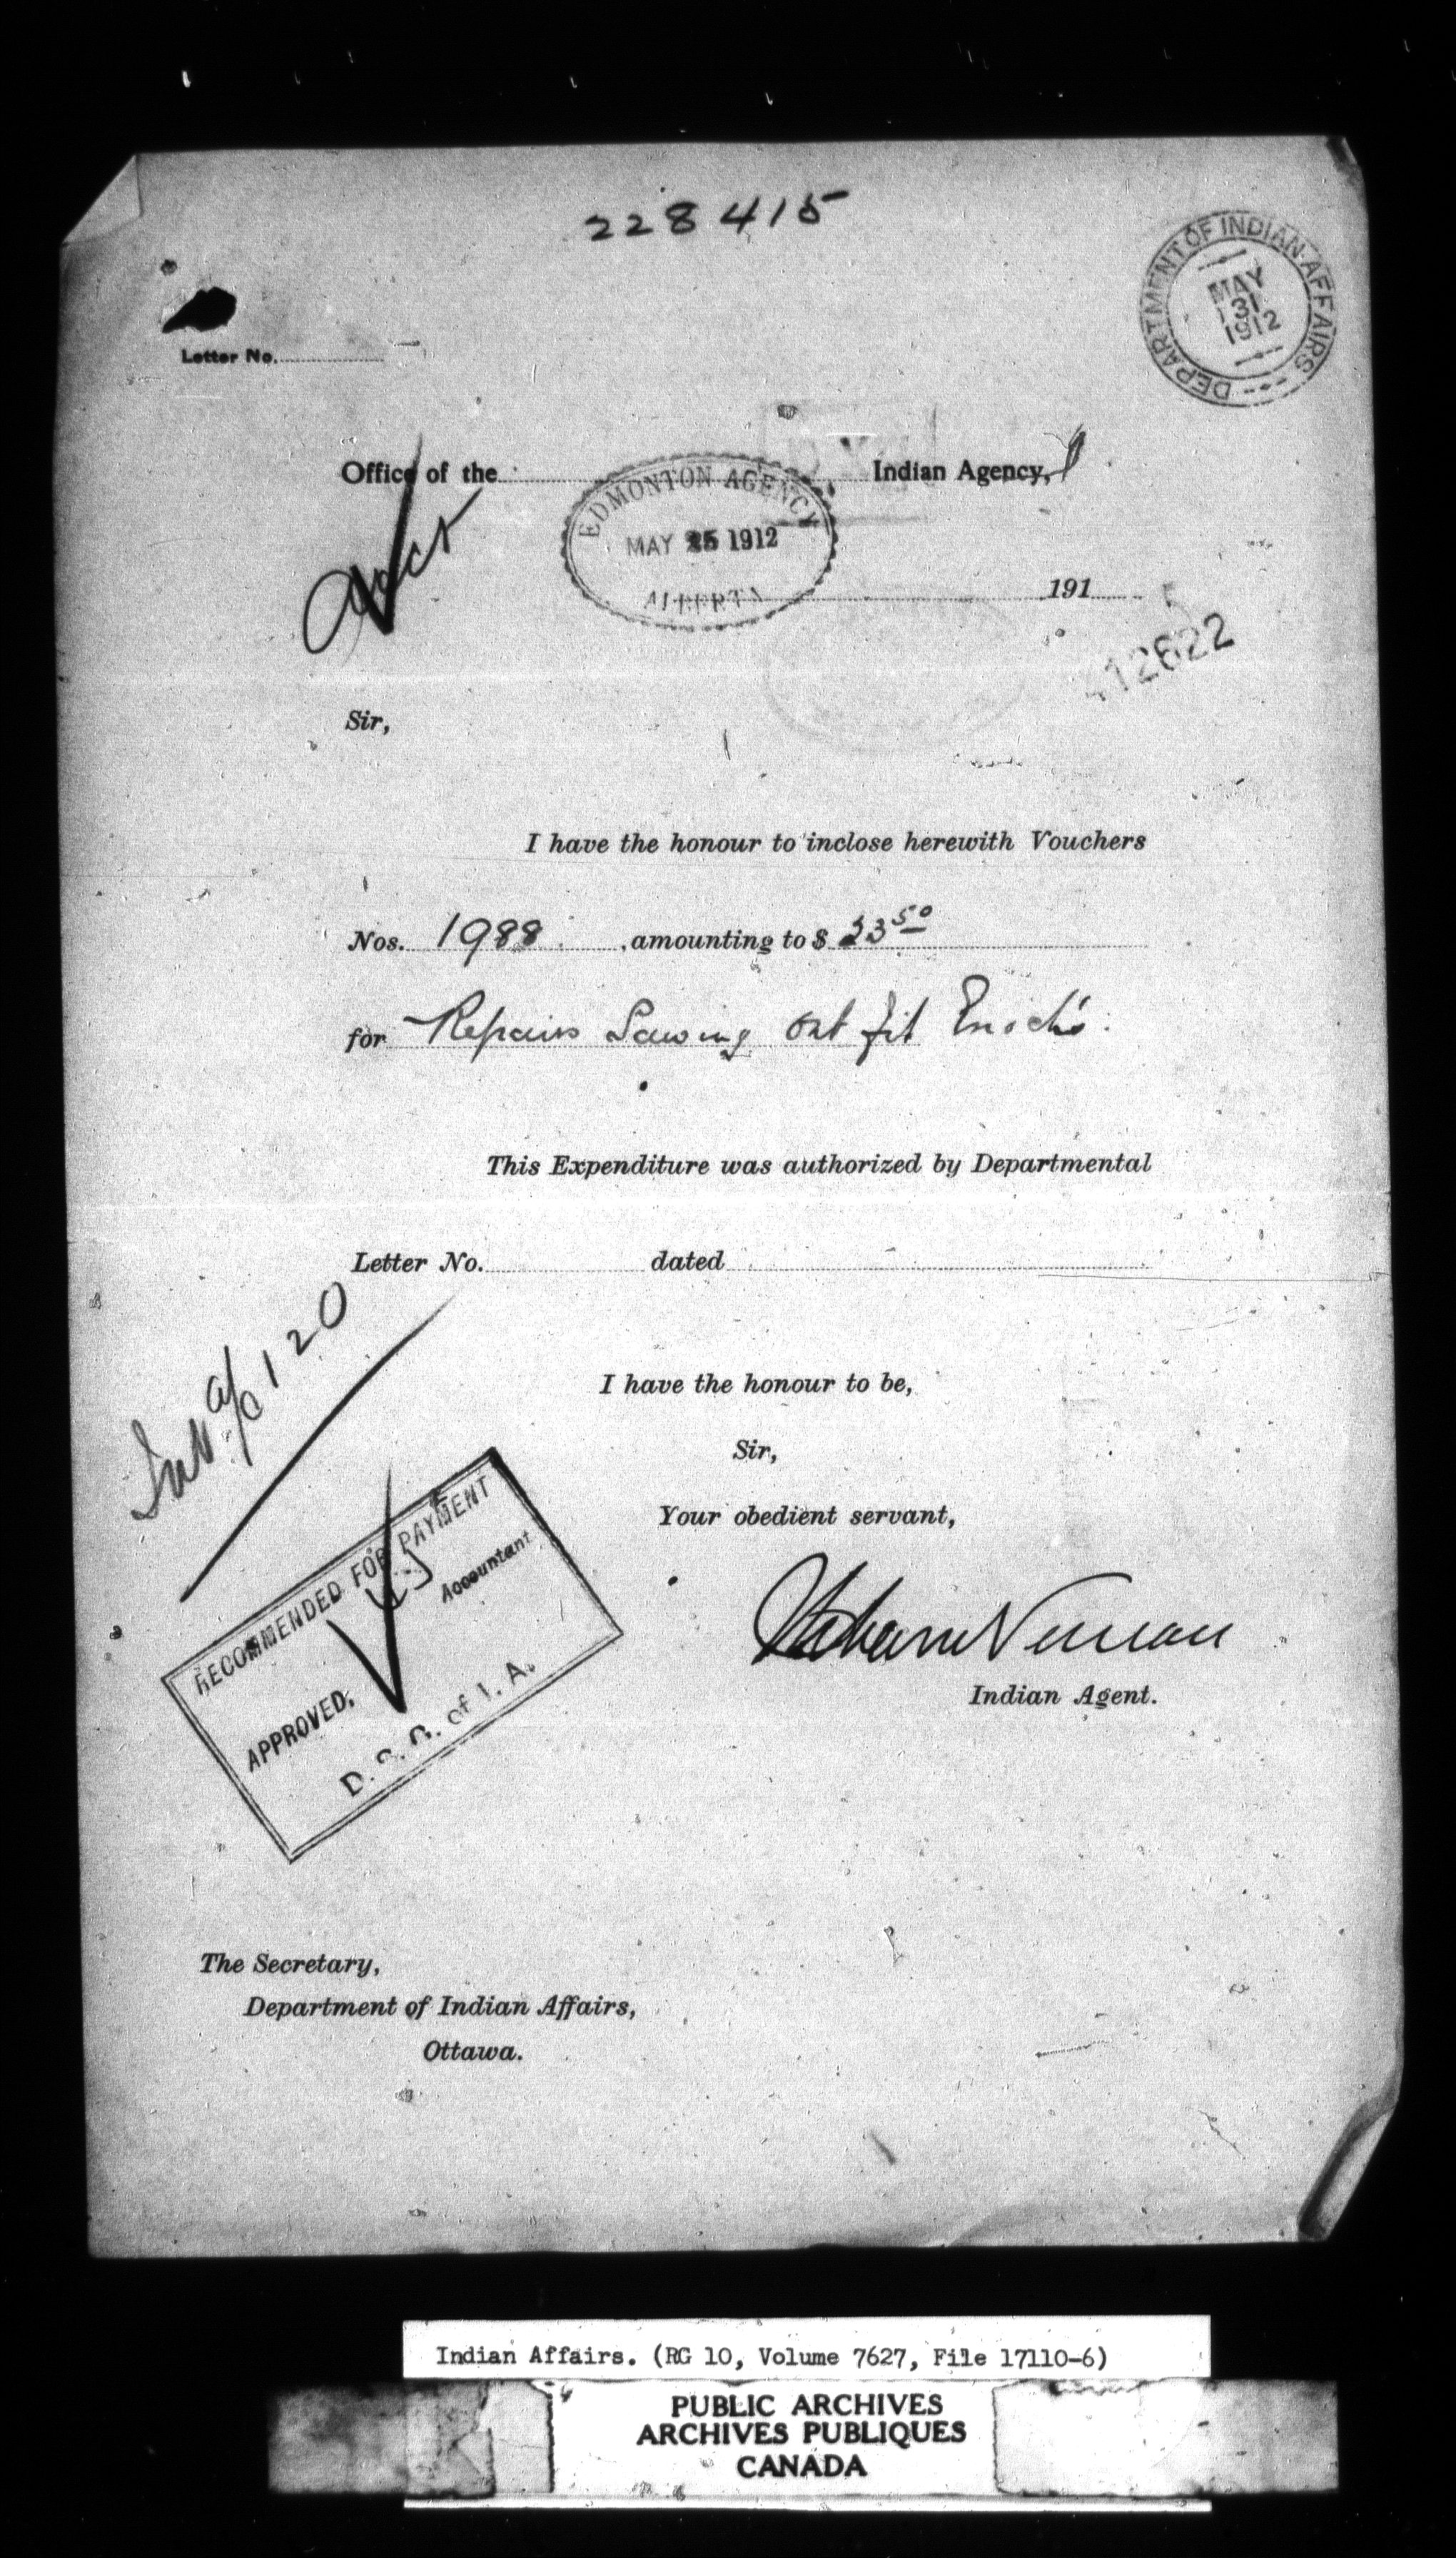 228415
DEPARTMENT OF INDIAN AFFAIRS
MAY
31
1912
Letter No.
Office of the Indian Agency,
EDMONTON AGENCY
MAY 25 1912
ALBERTA
191
Acct
412622
Sir,
I have the honour to inclose herewith Vouchers
Nos. 1988 amounting to $ 23 50
for Repairs Sawing Outfit Enoch's
This Expenditure was authorized by Departmental
Letter No. dated
a/c 120
I have the honour to be,
Sir,
Your obedient servant,
RECOMMENDED FOR PAYMENT
Accountant
APPROVED,
D. S. G. of I. A.
Indian Agent.
The Secretary,
Department of Indian Affairs,
Ottawa.
Indian Affairs. (RG 10, Volume 7627, File 17110-6)
PUBLIC ARCHIVES
ARCHIVES PUBLIQUES
CANADA